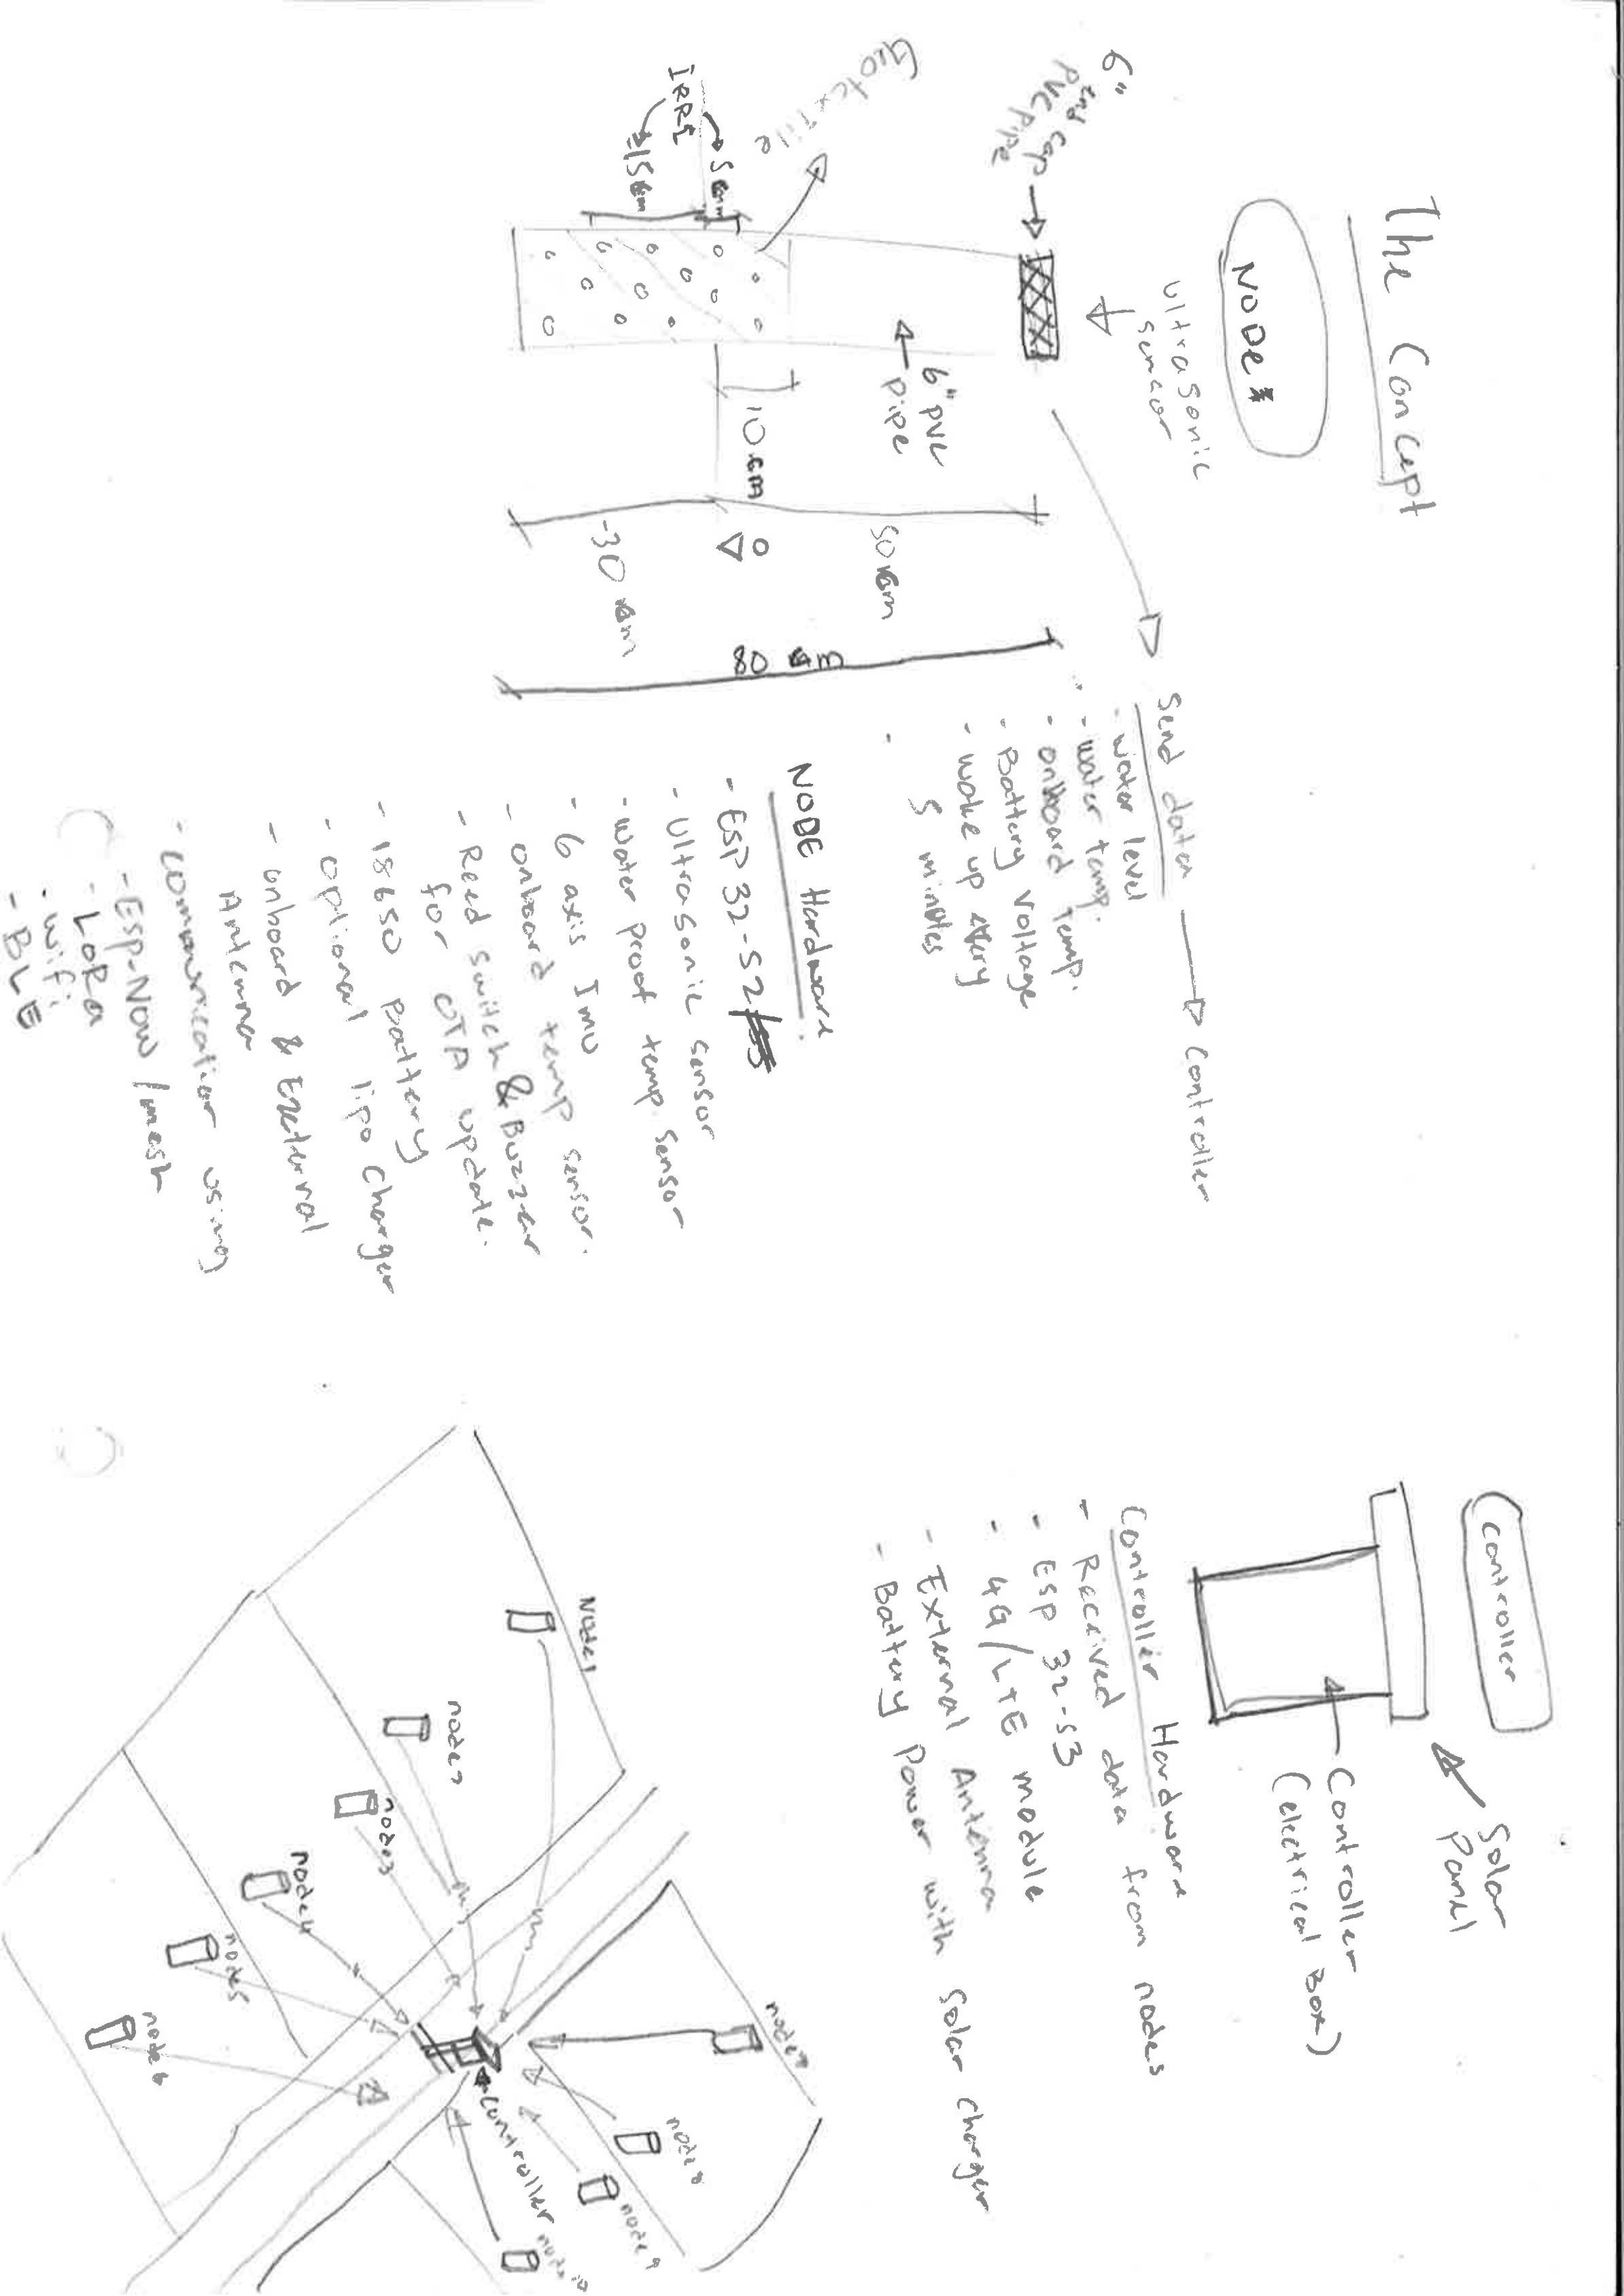 The Concept
NODE
Ultrasonic
sensor
6"
end cap
PVC pipe
6" PVC
pipe
Geotextile
50 cm
10 cm
0
80 cm
5 cm
IRRI
15 cm
-30 cm
Send data → Controller
- water level
- water temp.
- onboard temp.
- Battery Voltage
- wake up every
5 minutes
-
NODE Hardware
- ESP 32-S2
- Ultrasonic sensor
- water proof temp. sensor
- 6 axis Imu
- onboard temp sensor.
- Reed switch & Buzzer
for OTA update.
- 18650 Battery
- optional lipo charger
- onboard & External
Antenna
- communication using
- Esp-Now / mesh
- LoRa
- wifi
- BLE
Controller
Solar
Panel
Controller
(electrical Box)
Controller Hardware
- Received data from nodes
- Esp 32-S3
- 4G/LTE module
- External Antenna
- Battery Power with Solar charger
node 8
node 9
Node1
node 10
controller
node3
node4
node5
node6